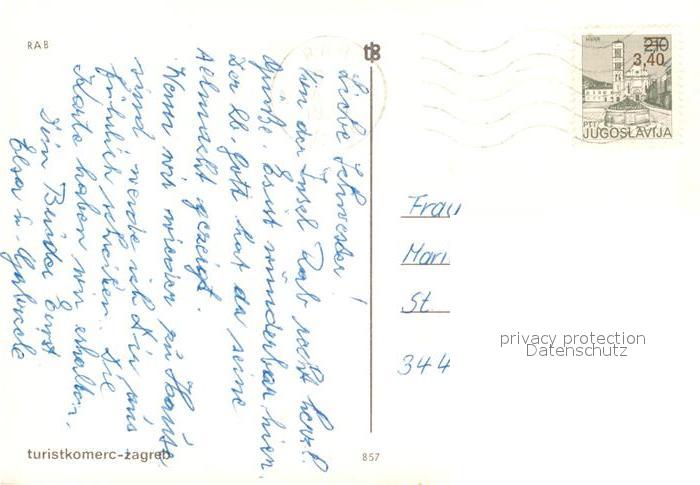 RAB
Liebe Schwester!
Von der Insel Rab recht herzl.
Grüße. Es ist wunderbar hier.
Der lb. Gott hat da seine
Allmacht gezeigt.
Wenn wir wieder zu Hause
sind werde ich Dir uns
schreiben. Die
Karte haben wir erhalten.
Dein Bruder Ernst
Elsa u. Gabriele
turistkomerc-zagreb
857
tB
HVAR
210
3,40
PTT
JUGOSLAVIJA
Frau
Mari
St
344
privacy protection
Datenschutz